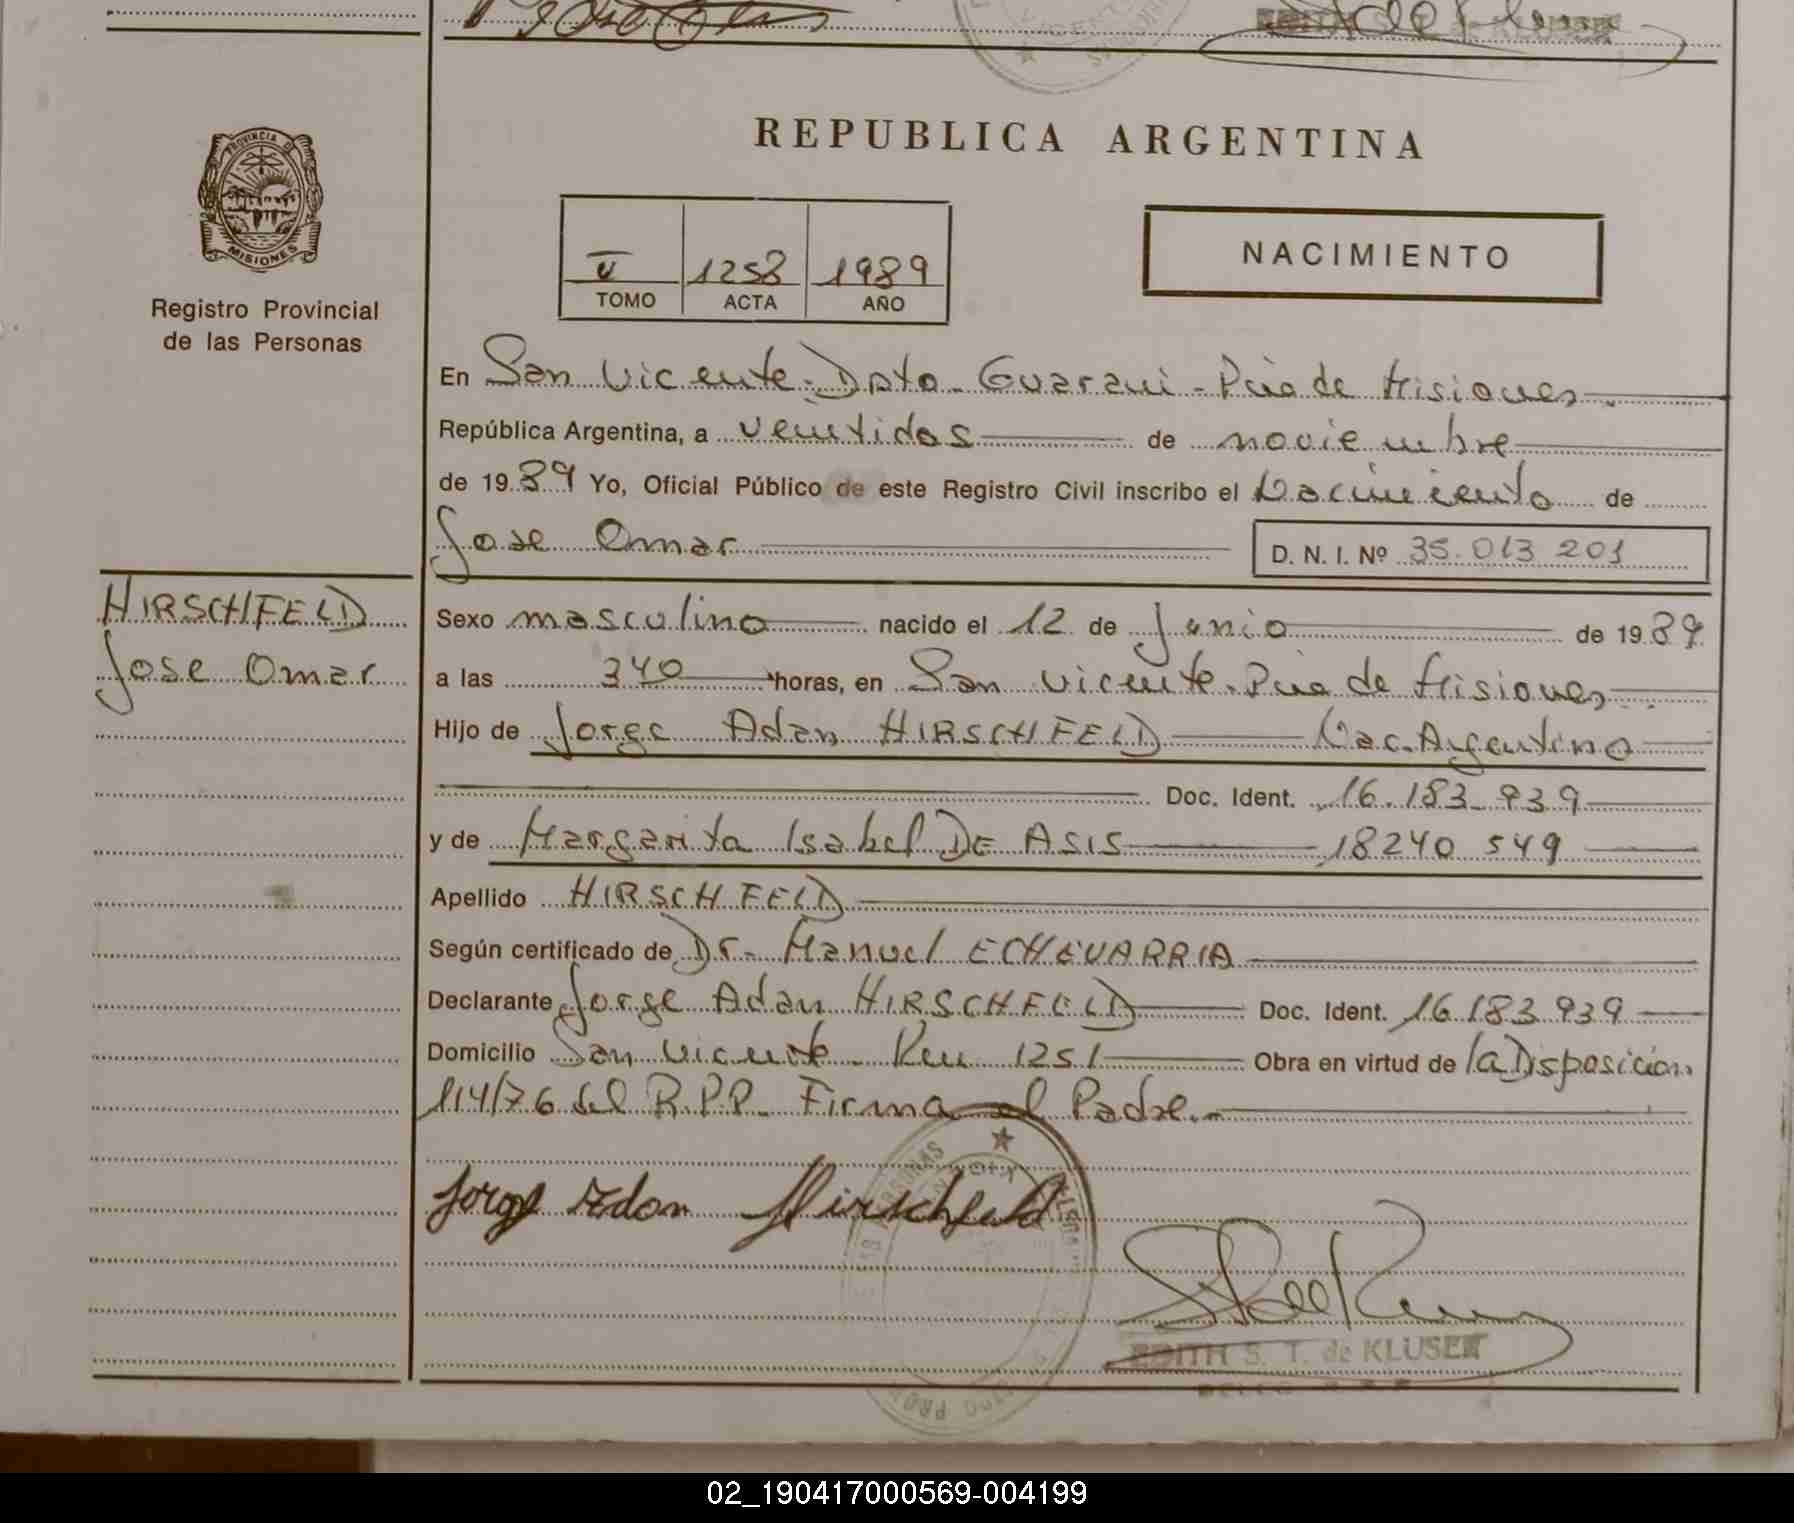 EDITH S. T. de KLUSER
REPUBLICA ARGENTINA
PROVINCIA DE
MISIONES
Registro Provincial
de las Personas
NACIMIENTO
V 1258 1989
TOMO ACTA AÑO
En San Vicente. Dpto. Guarani - Pcia de Misiones
República Argentina, a veintidos de noviembre
de 1989 Yo, Oficial Público de este Registro Civil inscribo el Nacimiento de
Jose Omar D. N. I. Nº 35.013 201
HIRSCHFELD
Jose Omar
Sexo masculino nacido el 12 de Junio de 1989
a las 340 horas, en San Vicente. Pcia de Misiones
Hijo de Jorge Adan HIRSCHFELD Nac. Argentino
Doc. Ident. 16.183.939
y de Margarita Isabel DE ASIS 18240 549
Apellido HIRSCHFELD
Según certificado de Dr. Manuel ECHEVARRIA
Declarante Jorge Adan HIRSCHFELD Doc. Ident. 16 183 939
Domicilio San Vicente. 1251 Obra en virtud de la Disposicion
114/76 del R.P.P. Firma el Padre.
Jorge Adan Hirschfeld
EDITH S. T. de KLUSER
02_190417000569-004199